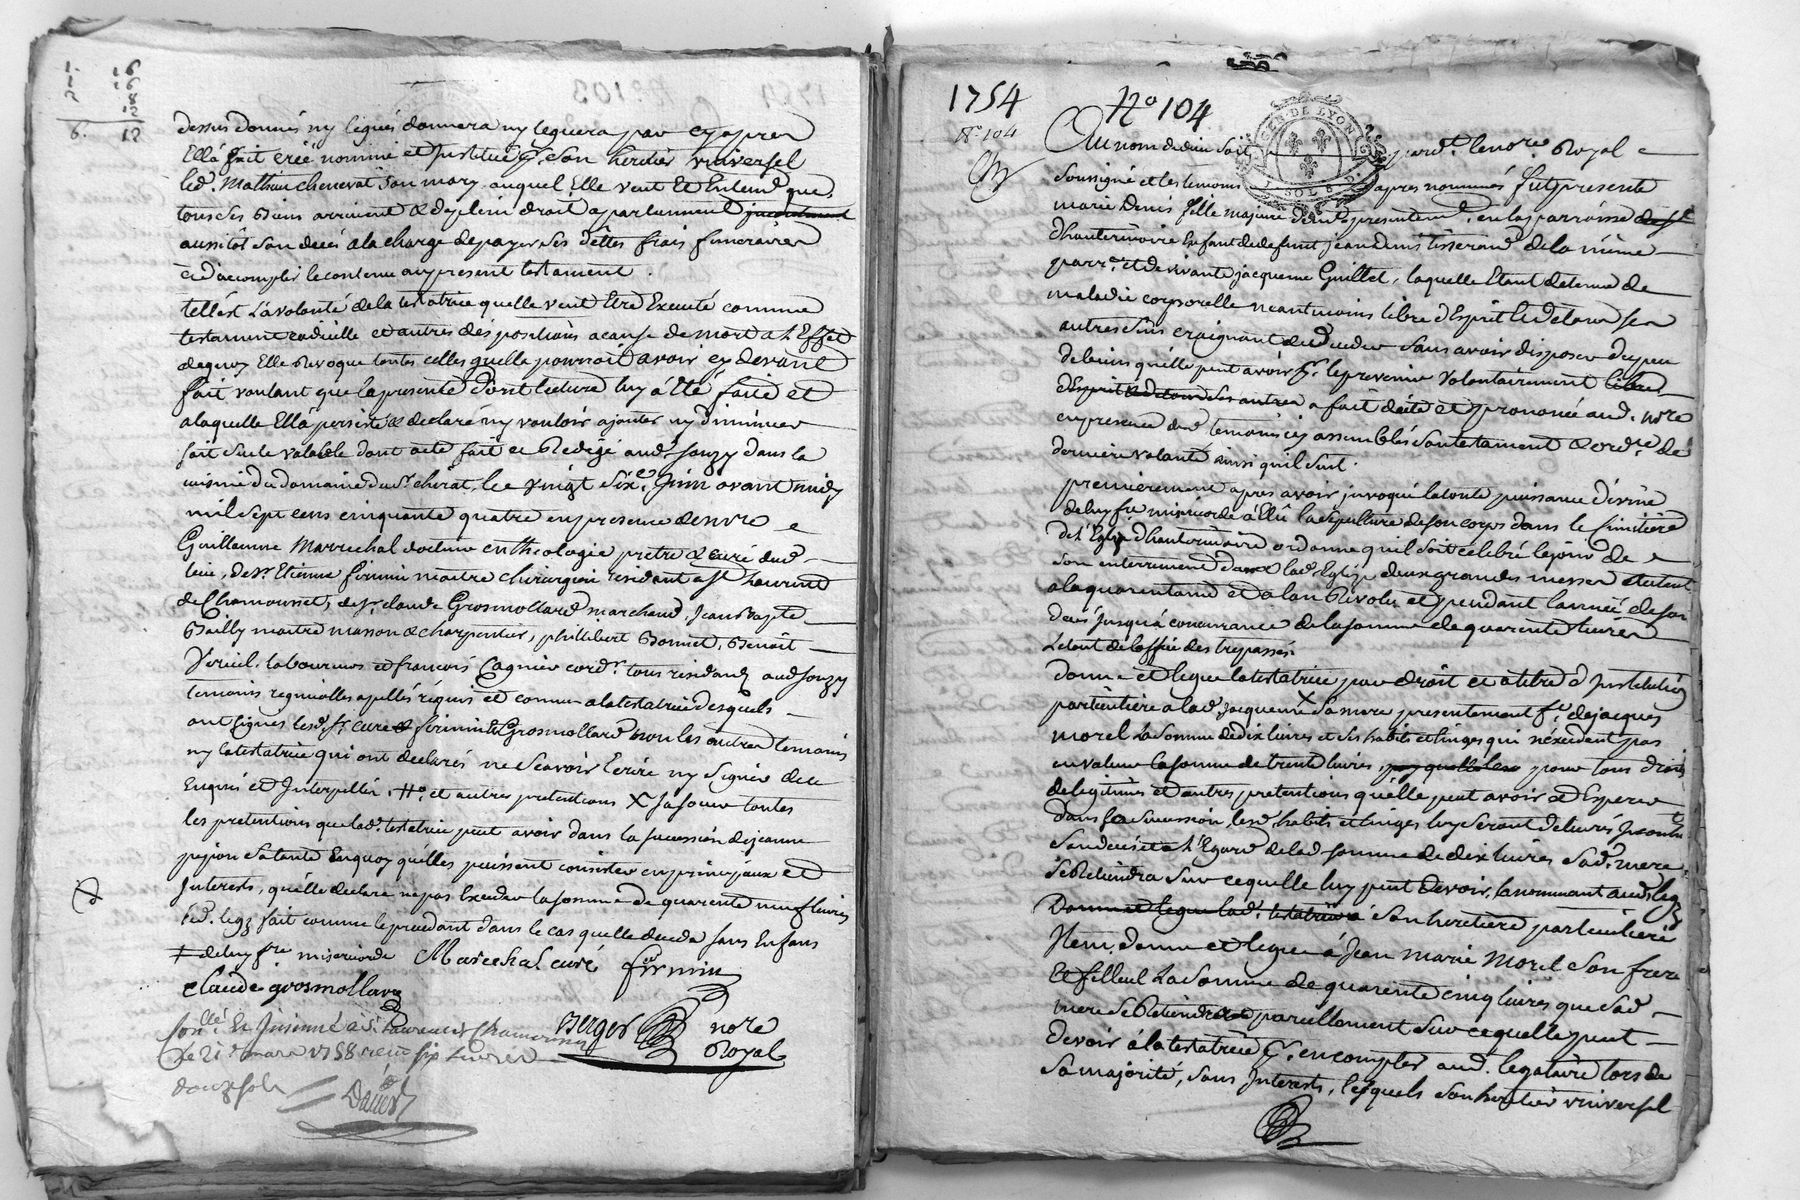 1. 16
1 16
2 8
12
6. 12
dessus donnés ny legués donnera ny leguera par cy apres
Ella fait créé nommé et Institué p. son heritier universel
led. Mathieu chenevat son mary auquel Elle veut Et Entend que
tous ses biens arrivent & de plein droit apartiennent
aussitôt son deces a la charge de payer ses dêttes frais funeraires
& d'acomplir le contenu au present testament.
tell'est La volonté de la testatrice quelle veut Etre Executé comme
testament codicille et autres dispositions a cause de mort a L'Effet
dequoy Elle Revoque toutes celles quelle pourroit avoir cy devant
fait voulant que la presente dont lecture luy a été faite et
a laquelle Ella persisté & declaré ny vouloir ajouter ny diminuer
soit seule valable dont acte fait et Redigé aud. souzy dans la
cuisine du domaine du Sr. cherat, Le vingt six.e Juin avant midy
mil sept cens cinquante quatre en presence de mre
Guillaume Marechal docteur en theologie pretre & curé dud.
lieu, de Sr. Etienne firmin maitre chirurgien residant a St. Laurent
de Chamousset, de Sr. claude Grosmollard marchand, Jean Bapte
Bailly maitre masson & charpentier, philibert Bonnet, Benoit
Vericel laboureurs et francois Cagnier cord.r tous residants aud. souzy
temoins requis et connus a la testatrice desquels
ont signés lesd. Sr. curé firmin & Grosmollard non les autres temoins
ny la testatrice qui ont declarés ne scavoir Ecrire ny signer de ce
Enquis et Interpellés. et autres pretentions X sa soeur toutes
les pretentions que lad. testatrice peut avoir dans la succession de jeanne
pejion sa tante Enquoy qu'elles puissent consister en principaux et
Interests, qu'elle declare ne pas Exceder la somme de quarente neuf livres
led. legz fait comme le precedant dans le cas quelle decede sans Enfans
de luy f.re misericorde Marechal curé firmin
Claude grosmollard
Con.lé En Jnsinué a St. Laurent de Chamousset
Le 21 mars 1758 recu six Livres Berger nore
douze sols Royal
1754 No 104
No. 104
Au nom de dieu soit pard.t le no.re Royal
soussigné et les temoins apres nommés fut presente
marie Denis fille majeure dem.t presentem.t en la parroisse
dhauterivoire Enfant de defunt jean denis tisserand de la même
parr.e et de vivante jacqueme Guillet, laquelle Etant detenue de
maladie corporelle neantmoins libre d'Esprit & de tous ses
autres sens craignant de deceder sans avoir disposer du peu
de biens qu'elle peut avoir p. le prevenir volontairement libre
d'Esprit & de tous ses autres a fait dicté et prononcé aud. nore
en presence desd. temoins icy assemblés son testament & ord.re de
derniere volonté ainsi quil suit.
premierement apres avoir invoqué la toute puissance divine
de luy fre misericorde a Ellû la sepulture de son corps dans le cimitiere
de l'Eglise d'hauterivoire ordonne quil soit celebré le jour de
son enterrement dans lad. Eglise deux grandes messes Autant
a la quarantaine et a lan Revolu et pendant l'année de son
deces jusqu'a concurrance de la somme de quarente livres
Letout de loffice des trepassés.
donne et legue la testatrice par droit et a titre d'Institution
particuliere a lad. Jacqueme X sa mere presentement f.e de jacques
morel La somme de dix livres et ses habits et linges qui n'excedent pas
en valeur la somme de trente livres, pour tous droits
de legitimes et autres pretentions qu'elle peut avoir et Esperer
dans sa succession, lesd. habits et linges luy seront delivrés Jncontin.t
son deces et a l'Egard de lad. somme de dix livres sad. mere
se Retiendra sur ce quelle luy peut devoir, la nommant aud. legz
Donne et legue lad. testatrice son heritiere particuliere
Jtem donne et legue à Jean marie Morel son frere
Et filleul La somme de quarente cinq livres que sad.
mere se Retiendra pareillement sur ce quelle peut
devoir à la testatrice p. en compter aud. legataire lors de
sa majorité, sans Interests, lesquels son heritier universel
GEN. DE LYON
SOLS